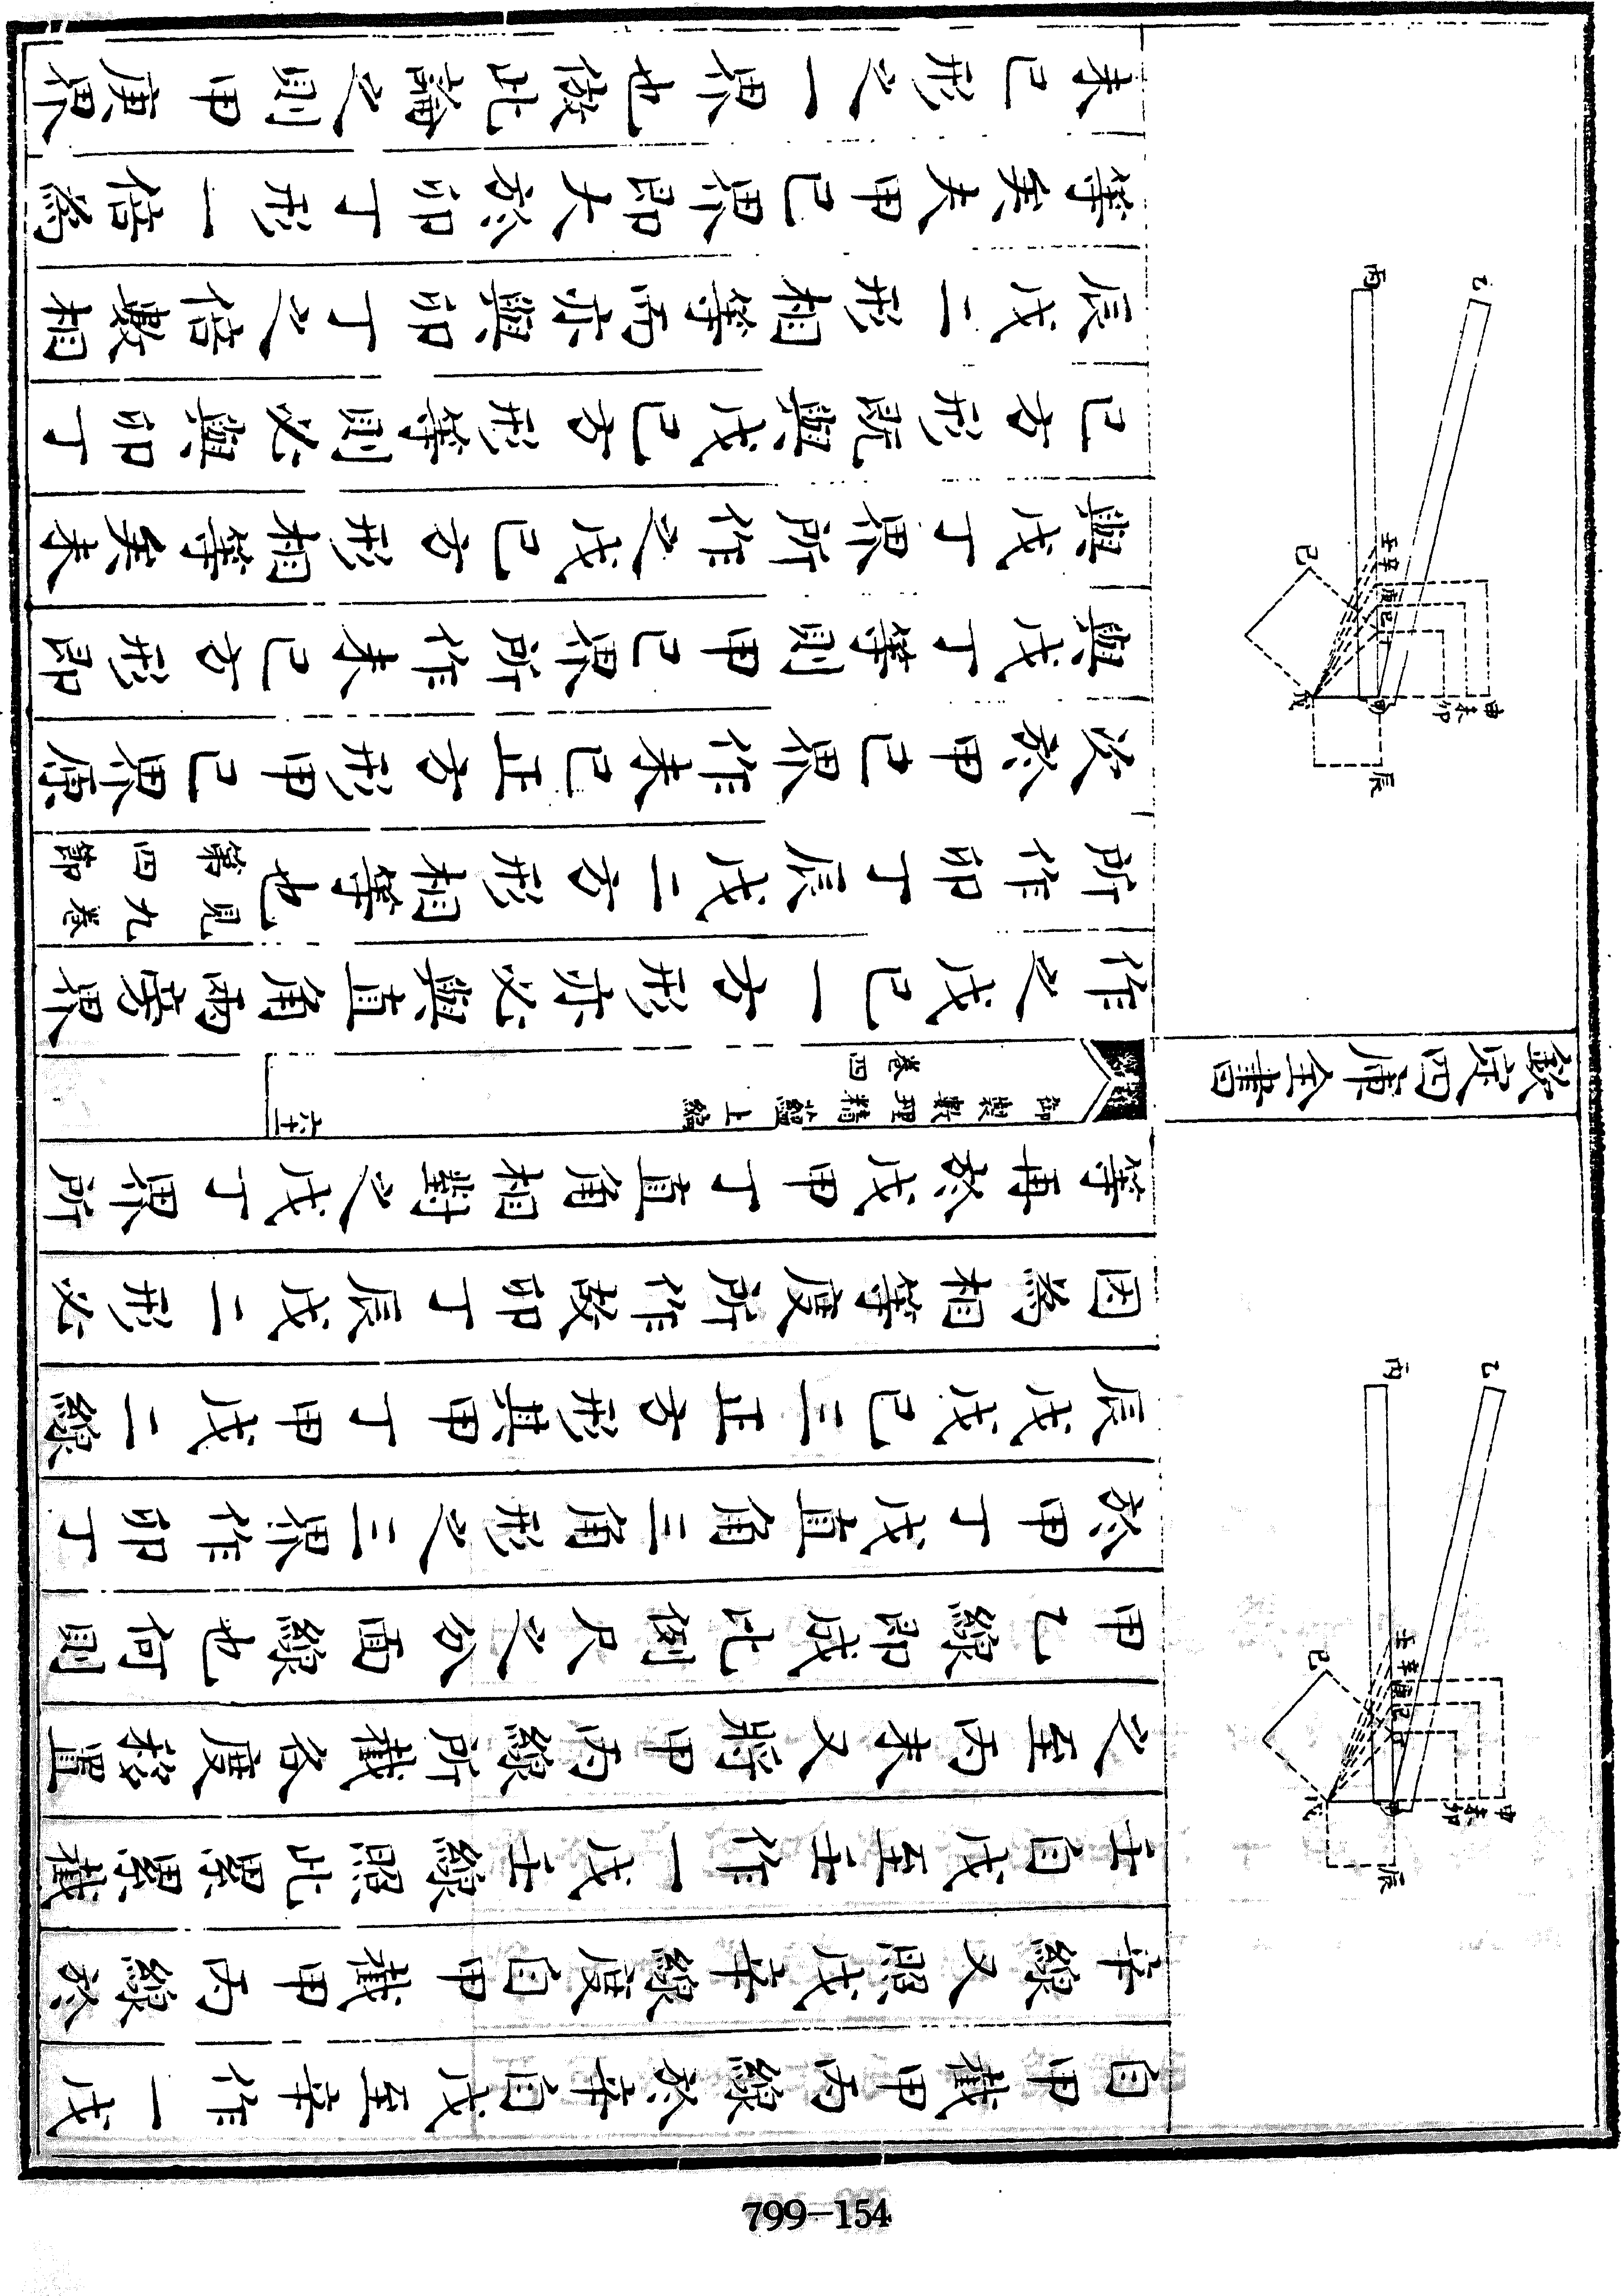 自甲截甲丙線於辛自戊至辛作一戊
辛線又照戊辛線度自甲截甲丙線於
壬自戊至壬作一戊壬線照此累累截
之至丙末又將甲丙線所截各度移置
甲乙線即成比例尺之分面線也何則
於甲丁戊直角三角形之三界作卯丁
辰戊戊己三正方形其甲丁甲戊二線
因為相等度所作故卯丁辰戊二形必
等再於戊甲丁直角相對之戊丁界所
乙
丙
壬
辛
庚
己
丁
己
戊
甲
卯
未
申
辰
欽定四庫全書
御製數理精蘊上編
卷四
六十二
作之戊己一方形亦必與直角兩旁界
所作卯丁辰戊二方形相等也見九卷
第四節
次於甲己界作未己正方形甲己界原
與戊丁等則甲己界所作未己方形即
與戊丁界所作之戊己方形相等矣未
己方形既與戊己方形等則必與卯丁
辰戊二形相等而亦與卯丁之倍數相
等矣夫甲己界即大於卯丁形一倍為
未己形之一界也倣此論之則甲庚界
乙
丙
壬
辛
庚
己
丁
己
戊
甲
卯
未
申
辰
799-154